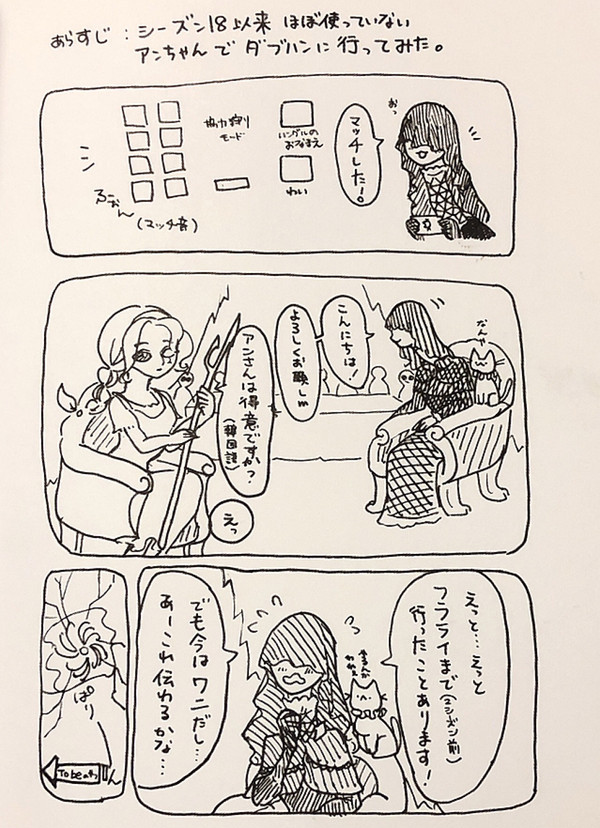 あらすじ：シーズン18以来 ほぼ使っていない
アンちゃんで ダブハンに 行ってみた。
おっ
マッチした！。
ハングルの
おなまえ
わい
協力狩り
モード
(マッチ音)
なんや
こんにちは！
よろしくお願いしm
アンさんは得意ですか？
(韓国語)
えっ
えっと…えっと
フラライまで(2シーズン前)
行ったことあります！
でも今はワニだし…
あーこれ伝わるかな…
ぱり